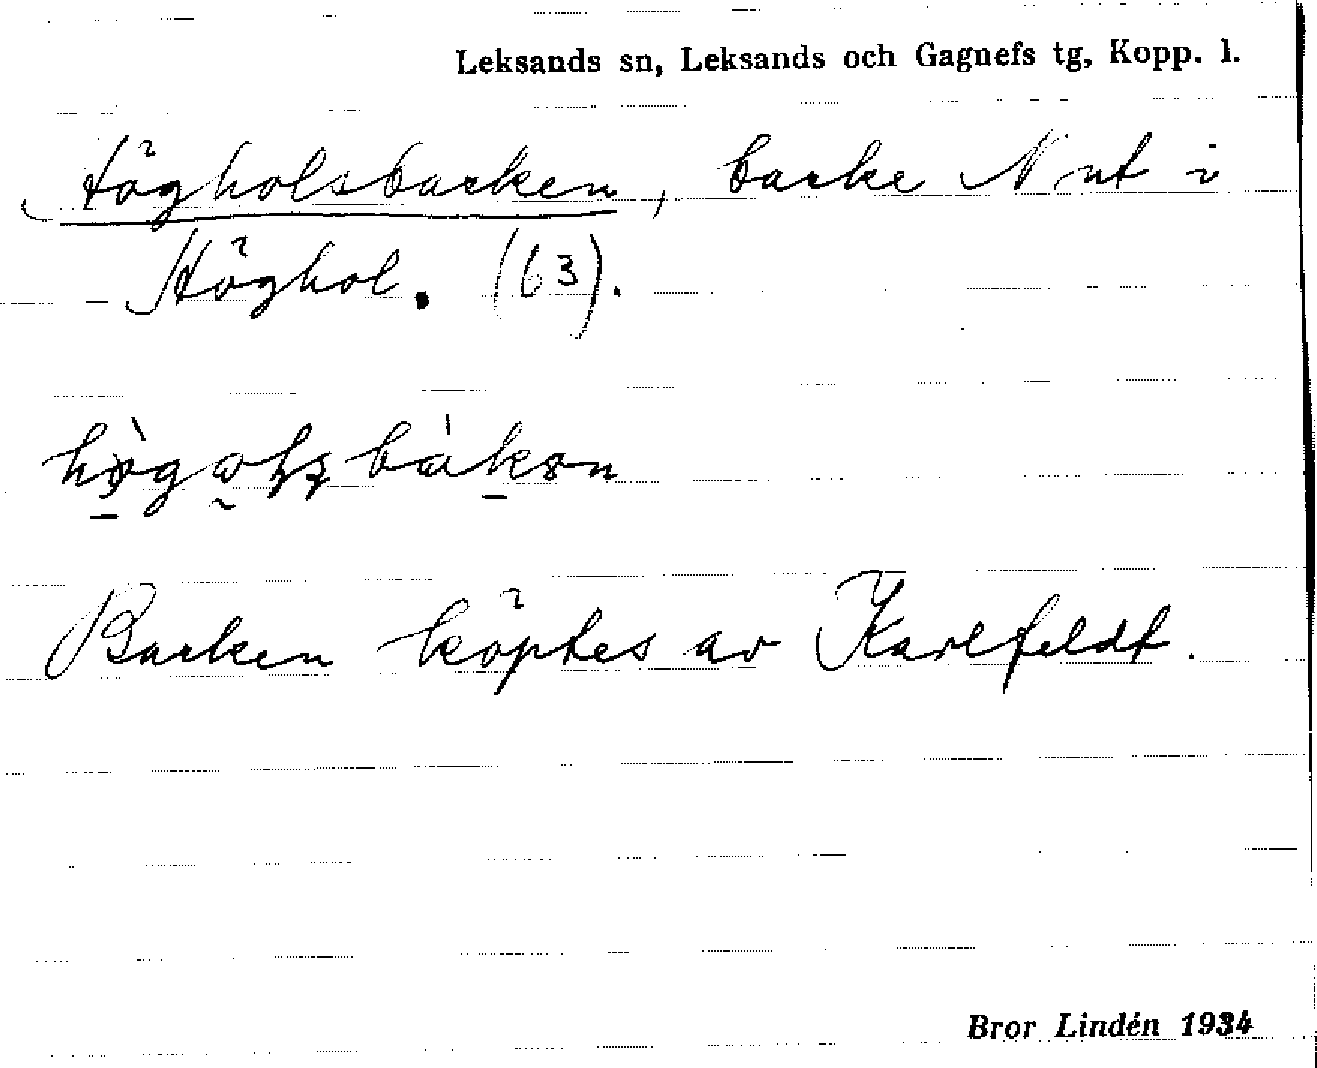 Leksands sn, Leksands och Gagnefs tg, Kopp. l.
Högholsbacken, backe N ut i
Höghol. (63).
Backen köptes av Karlfeldt.
Bror Lindén 1934